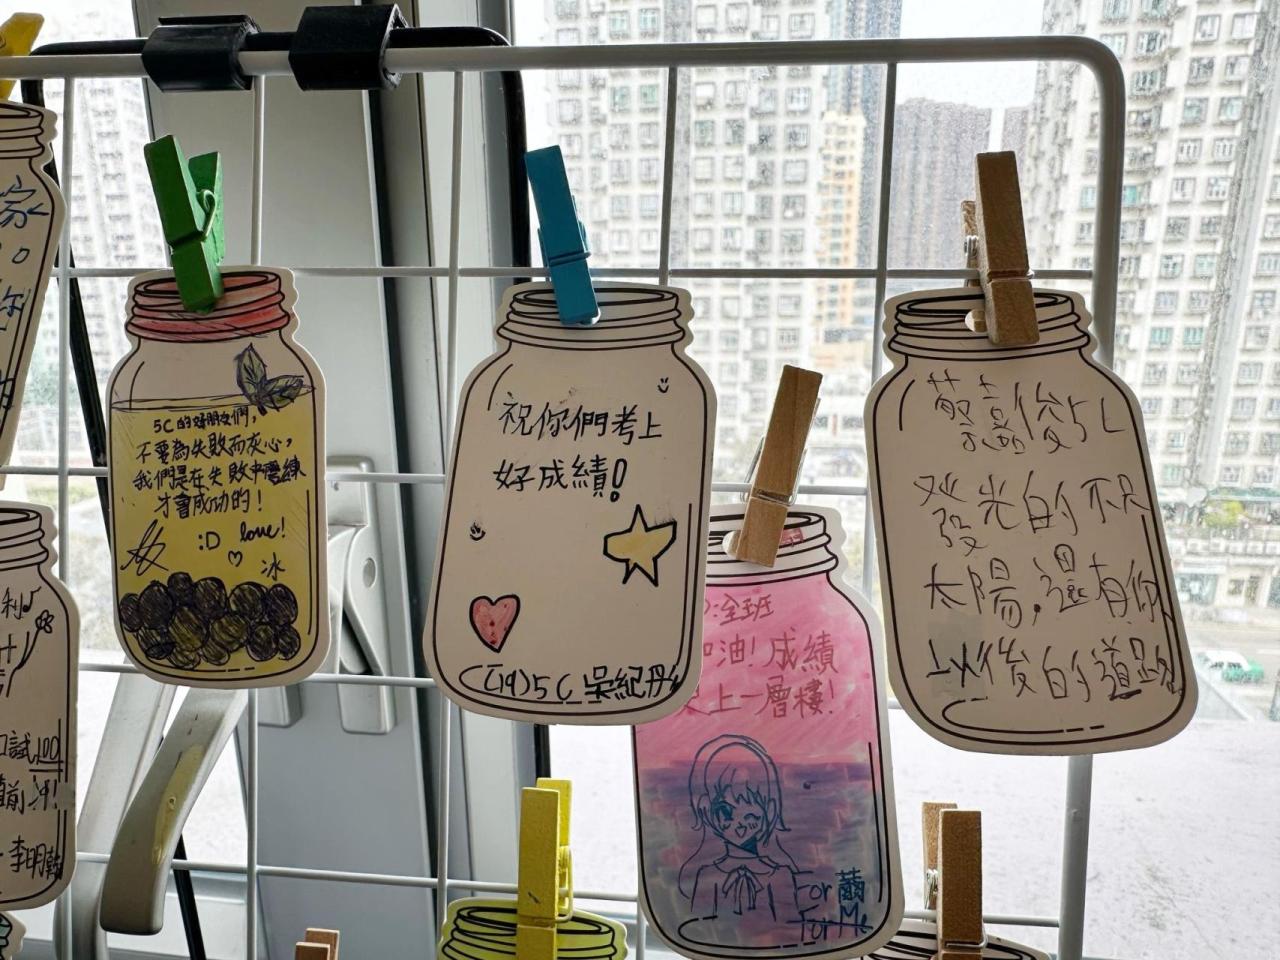 5C的好朋友們,
不要為失敗而灰心,
我們是在失敗中磨練
才會成功的!
:D love!
冰
祝你們考上
好成績!
(19)5C 吳紀丹
:全班
加油!成績
更上一層樓!
For
For Me
後5C
發光的不只
太陽,還有你
以後的道路
家
你
利
試100
前冲!
李明